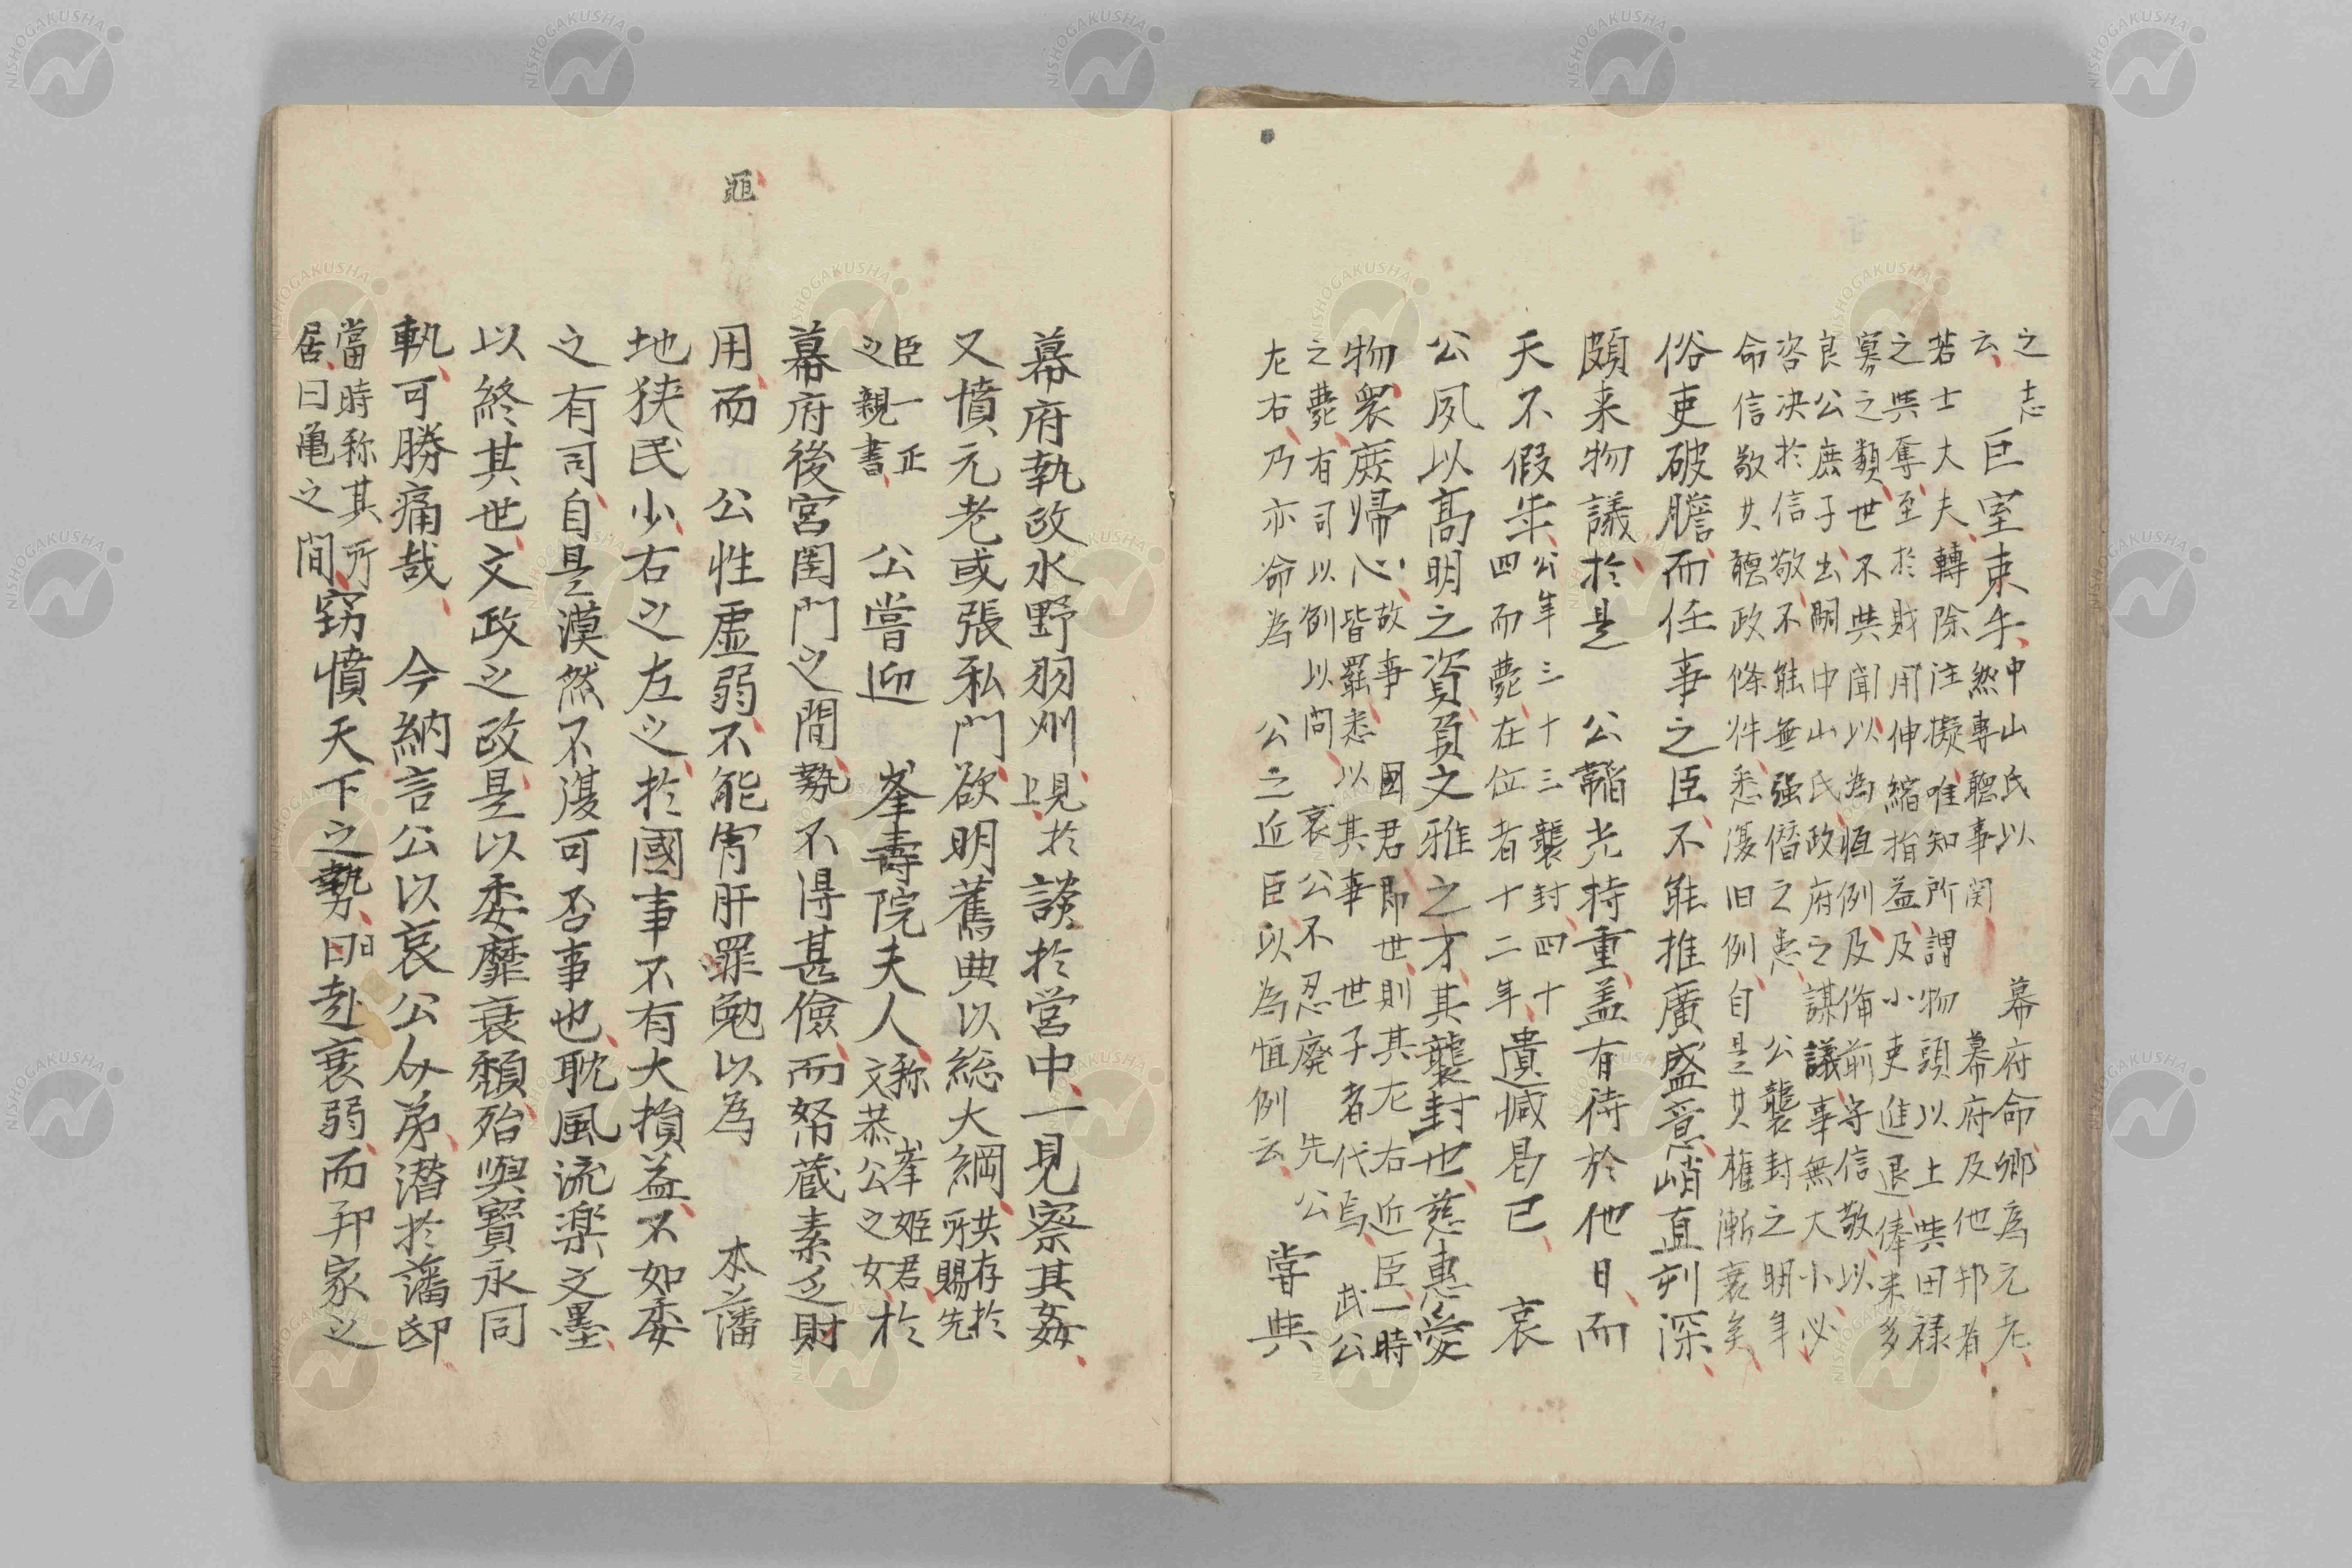 之志
云、巨室束手、中山氏以　幕府命鄉為元老、
然專聽事関　幕府及他邦者、
若士大夫、轉除注擬、唯知所謂物頭以上、與田禄
之與奪、至於財用伸縮、指益及小吏進退、俸米多
寡之類、世不與聞、以為恒例、及備前守信敬、以
良公庶子、出嗣中山氏、政府之謀議、事無大小、必
咨决於信敬、不能無强僭之患、公襲封之明年、
命信敬共聽政條件悉復旧例、自是其權漸衰矣、
俗吏破膽、而任事之臣、不能推廣盛意、峭直刻深、
頗来物議、於是　公韜光持重、盖有待於他日、而
天不假年、公年三十三襲封四十
四而薨、在位者十二年、遺憾曷已、　哀
公夙以高明之資、負文雅之才、其襲封也、慈惠愛
物、衆庶歸心、故事　國君即世、則其左右近臣、一時
皆罷、悉以其事　世子者代焉、武公
之薨、有司以例以問、哀公不忍廢　先公
左右、乃亦命為　公之近臣、以為恒例云、嘗與
幕府執政水野羽州、見於
上、談於営中、一見察其姦、
又憤元老或張私門、欲明舊典以総大綱、共存於
所賜先
臣一正
之親書、　公嘗迎　峯壽院夫人、称峯姫君、
文恭公之女、於
幕府後宮閨門之間、勢不得甚儉、而帑蔵素乏財
用、而　公性虚弱、不能宵肝罪勉以為　本藩
地狭民少、右之左之、於國事不有大損益、不如委
之有司、自是漠然不復可否事也、耽風流楽文墨、
以終其世、文政之政、是以委靡衰頽、殆與寳永同
軌、可勝痛哉、　今納言公以哀公介弟、潜於藩邸、
當時称其所
居、曰亀之間、竊憤天下之勢、日赴衰弱、而邦家之